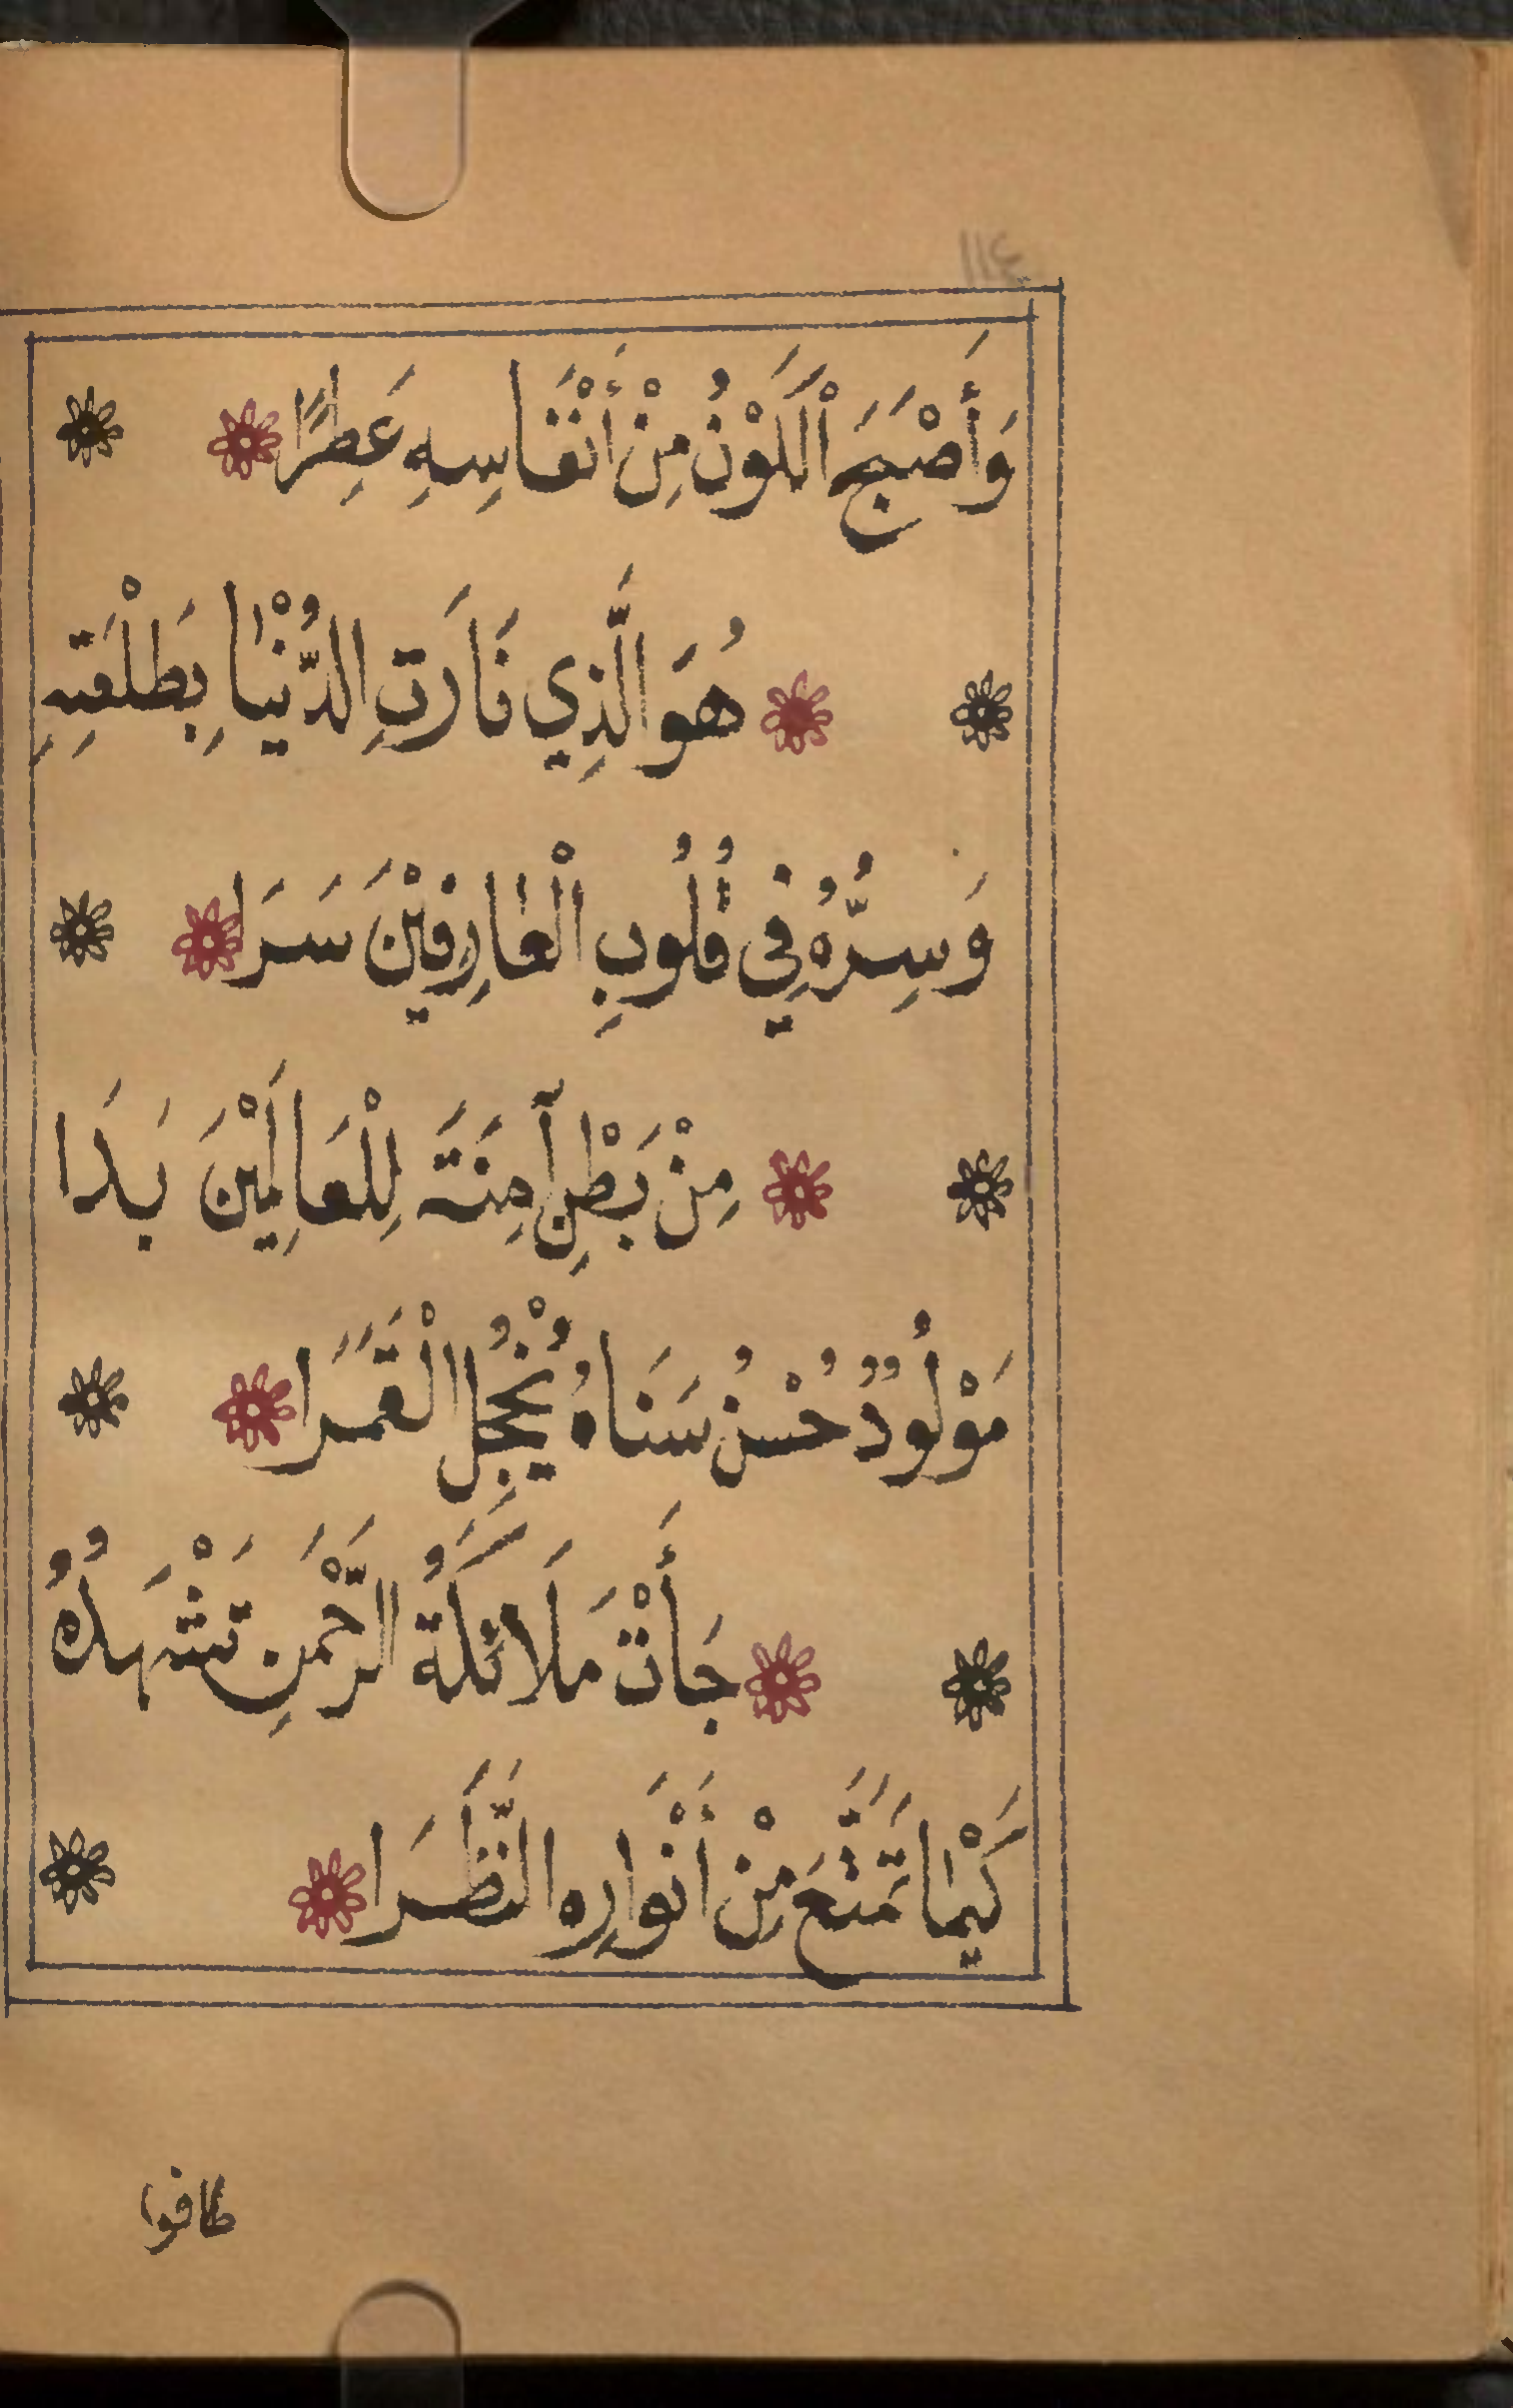 ١١٤
وَأَصْبَحَ اْلكَوْنُ مِنْ أَنْفَاسِهِ عَطِرًا
هُوَ الَّذِي نَارَتِ الدُّنْيَا بِطَلْعَتِهِ
وَسِرُّهُ فِي قُلُوبِ الْعَارِفِيْنَ سَرَا
مِنْ بَطْنِ آمِنَتَه لِلْعَالَمِيْنَ بَدَا
مَوْلُودٌ حُسْنُ سَنَاهُ يُخْجِلُ الْقَمَرَا
جَأَتْ مَلَائكَةُ الرَّحْمَنِ تَشْهَدُهُ
كَيْمَا تَمَتَّعَ مِنْ أَنْوَارِهِ النَّظَرَا
طافوا